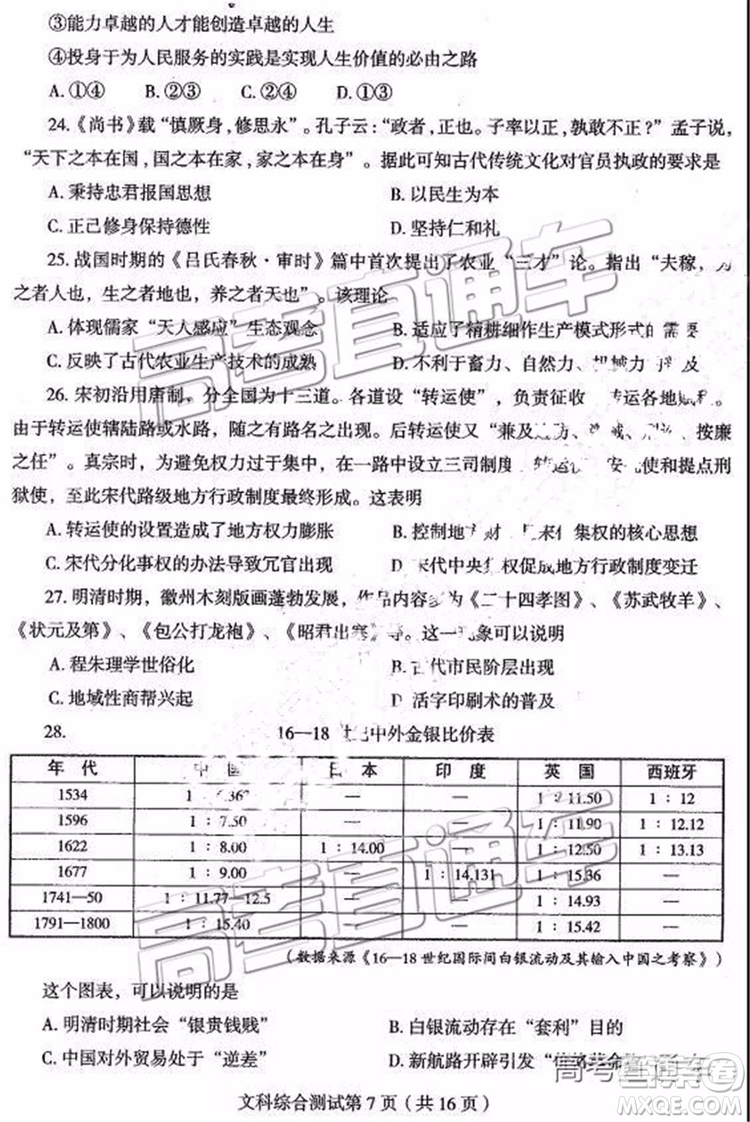 ③能力卓越的人才能创造卓越的人生
④投身于为人民服务的实践是实现人生价值的必由之路
A. ①④ B. ②③ C. ②④ D. ①③
24.《尚书》载“慎厥身，修思永”。孔子云：“政者，正也。子率以正，孰敢不正？”孟子说，
“天下之本在国，国之本在家，家之本在身”。据此可知古代传统文化对官员执政的要求是
A. 秉持忠君报国思想 B. 以民生为本
C. 正己修身保持德性 D. 坚持仁和礼
25. 战国时期的《吕氏春秋·审时》篇中首次提出了农业“三才”论。指出“夫稼，为
之者人也，生之者地也，养之者天也”。该理论
A. 体现儒家“天人感应”生态观念 B. 适应了精耕细作生产模式形式的需要
C. 反映了古代农业生产技术的成熟 D. 不利于畜力、自然力、机械力 及
26. 宋初沿用唐制，分全国为十三道。各道设“转运使”，负责征收 转运各地赋税。
由于转运使辖陆路或水路，随之有路名之出现。后转运使又“兼及边防、 、 、按廉
之任”。真宗时，为避免权力过于集中，在一路中设立三司制度 转运使、安抚使和提点刑
狱使，至此宋代路级地方行政制度最终形成。这表明
A. 转运使的设置造成了地方权力膨胀 B. 控制地方财 是宋代 集权的核心思想
C. 宋代分化事权的办法导致冗官 D. 宋代中央集权促成地方行政制度变迁
27. 明清时期，徽州木刻版画蓬勃发展，作品内容多为《二十四孝图》、《苏武牧羊》、
《状元及第》、《包公打龙袍》、《昭君出塞》等。这一现象可以说明
A. 程朱理学世俗化 B. 古代市民阶层出现
C. 地域性商帮兴起 D. 活字印刷术的普及
28. 16—18 世纪中外金银比价表
年 代 中 国 日 本 印 度 英 国 西班牙
1534 1 : 6.36 — — 1 : 11.50 1 : 12
1596 1 : 7.50 — — 1 : 11.90 1 : 12.12
1622 1 : 8.00 1 : 14.00 — 1 : 12.50 1 : 13.13
1677 1 : 9.00 — 1 : 14.131 —
1741—50 1 : 11.77—12.5 — — 1 : 14.93
1791—1800 1 : 15.40 — — 1 : 15.42
（数据来源《16—18世纪国际间白银流动及其输入中国之考察》）
这个图表，可以说明的是
A. 明清时期社会“银贵钱贱” B. 白银流动存在“套利”目的
C. 中国对外贸易处于“逆差” D. 新航路开辟引发“价格革命”
文科综合测试第 7 页（共 16 页）
高考直通车
高考直通车
高考直通车
答案圈
MXQE.COM